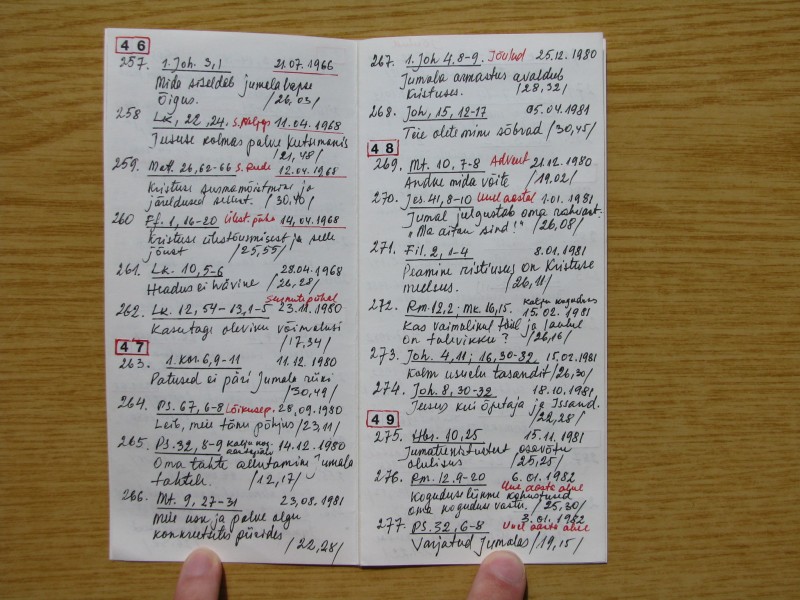 46
257. 1. Joh. 3,1 21.07.1966
Mida siseldeb jumalalapse
Õigus. /26,03/
258 Lk, 22,24. S. Neljap 11.04.1968
Jeesuse kolmas palve Ketsemanis
/21,48/
259. Matt. 26,62-66 S. Reede 12.04.1968
Kristuse surmamõistmine ja
järeldused sellest. /30,40/
260 Ef. 1, 16-20 Ülest. püha 14.04.1968
Kristuse ülestõusmisest ja selle
jõust /25,55/
261. Lk. 10,5-6 28.04.1968
Headus ei hävine /26,28/
Surnutepühal
262. Lk. 12, 54-13,1-5 23.11.1980
Kasutage oleviku võimalusi
/17,34/
47
263. 1. Kor. 6,9-11 11.12.1980
Patused ei päri Jumala riiki
/30,49/
264. Ps. 67, 6-8 Lõikusep. 28.09.1980
Leib, meie tänu põhjus /23,11/
265. Ps. 32, 8-9 14.12.1980
Oma tahte allutamine Jumala
tahtele. /12,17/
266. Mt. 9, 27-31 23.08.1981
Meie usu ja palve olgu
konkreetsetes piirides
/22,28/
267. 1. Joh 4,8-9. Jõulud 25.12.1980
Jumala armastus avaldub
Kristuses. /28,32/
268. Joh, 15, 12-17 05.04.1981
Teie olete minu sõbrad /30,45/
48
269. Mt. 10, 7-8 Advent 21.12.1980
Andke mida võite /19,02/
270. Jes. 41, 8-10 Uuel aastal 1.01.1981
Jumal julgustab oma rahvast.
"Ma aitan sind!" /26,08/
271. Fil. 2, 1-4 8.01.1981
Peamine ristiusus on Kristuse
meelsus. /26,11/
272. Rm. 12,2; Mk. 16,15. Kalju koguduses
15.02.1981
Kas vaimalikul tööl ja laulul
on tulevikku? /26,16/
273. Joh. 4,11; 16,30-32, 15.02.1981
Kolm usuelu tasandit /26,30/
274. Joh. 8, 30-32 18.10.1981
Jeesus kui õpetaja ja Issand.
/22,28/
49
275. Hbr. 10,25 15.11.1981
Jumalateenistustest osavõtu
olulisus /25,25/
276. Rm. 12, 9-20 6.01.1982
Uue aasta alul
Koguduse liikme kohustused
oma koguduse vastu. /25,30/
3.01.1982
277. Ps. 32, 6-8 Uuel aasta alul
Varjatud Jumalas /19,15/